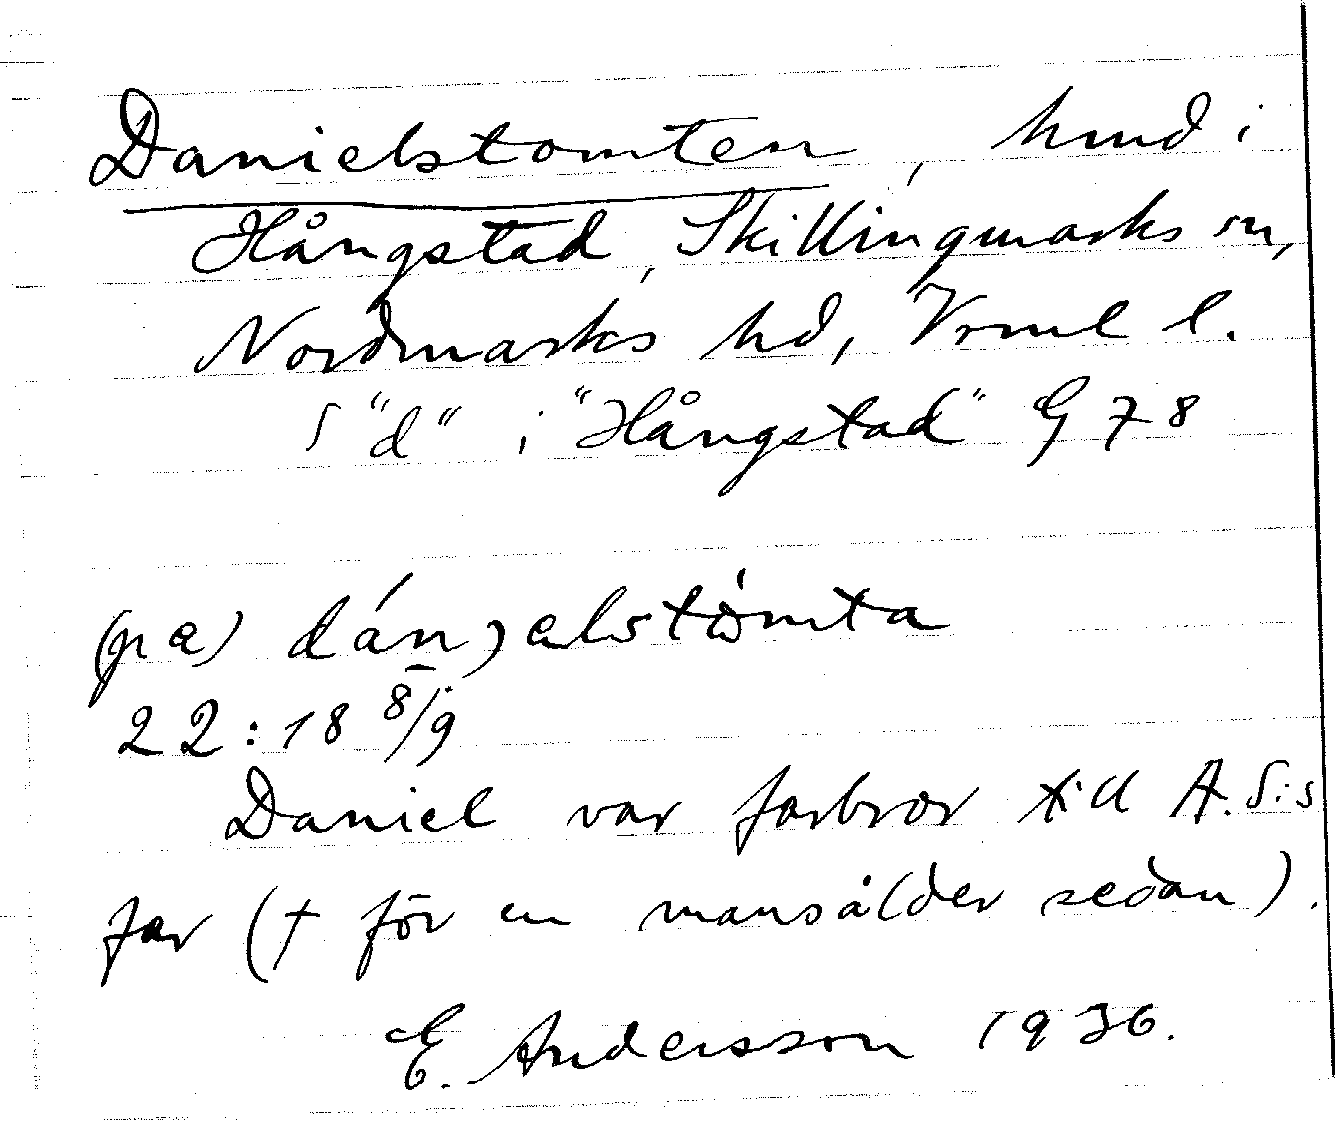 Danielstomten, hmd i
Hångstad, Skillingmarks sn,
Nordmarks hd, Vrml l.
S "d" i "Hångstad" G 78
(pa) dán)alstòmta
22:18 8/9
Daniel var farbror till A. S:s
far († för en mansålder sedan).
E. Andersson 1936.